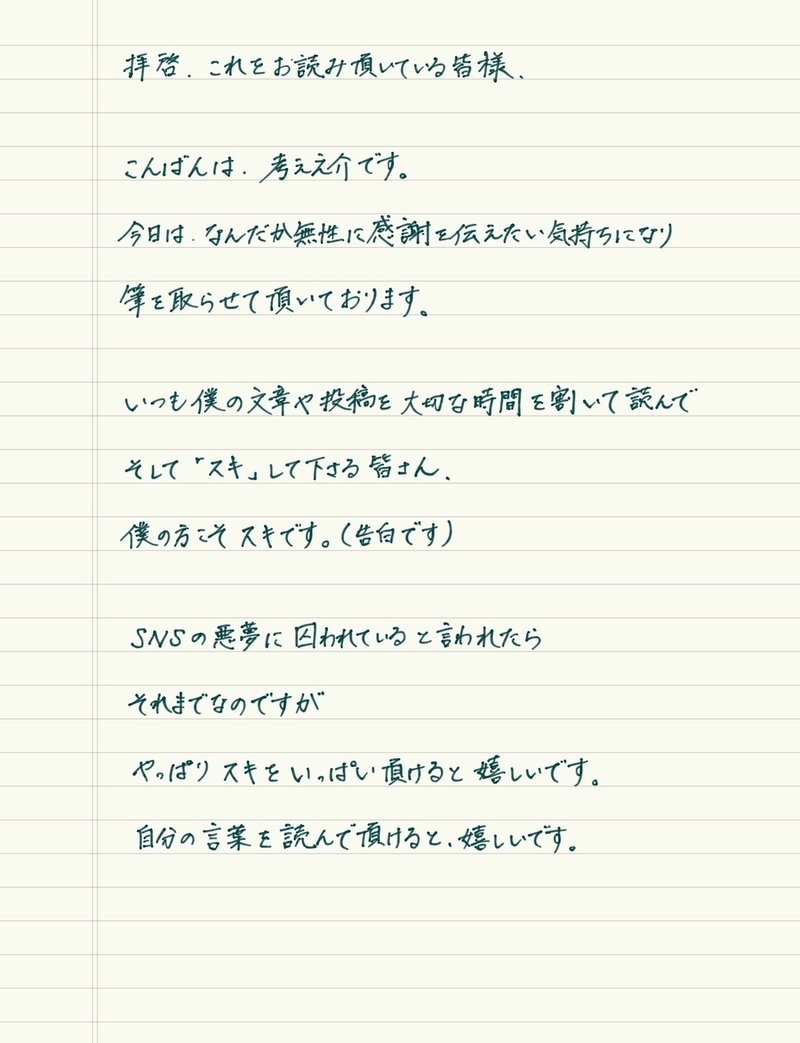 拝啓、これをお読み頂いている皆様、
こんばんは、考ええ介です。
今日は、なんだか無性に感謝を伝えたい気持ちになり
筆を取らせて頂いております。
いつも僕の文章や投稿を大切な時間を割いて読んで
そして「スキ」して下さる皆さん、
僕の方こそスキです。(告白です)
SNSの悪夢に囚われていると言われたら
それまでなのですが
やっぱりスキをいっぱい頂けると嬉しいです。
自分の言葉を読んで頂けると、嬉しいです。